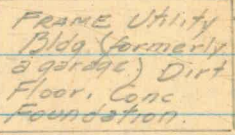 FRAME Utility
Bldg. (formerly
a garage.) Dirt
Floor. Conc
Foundation.